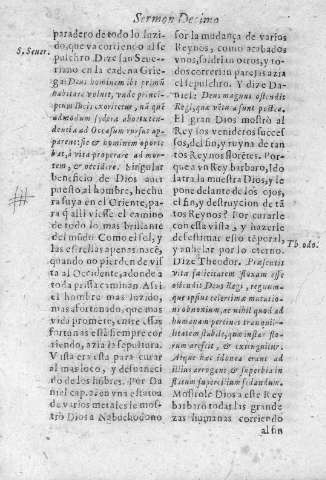 Sermon Decimo
paradero de todo lo luzi-
do, que va corriendo al se
pulchro. Dize san Seue-
riano en la cadena Grie-
ga: Deus hominem ibi primũ
habitare voluit, vnde princi-
pium luci exoritur, nã quē
admodum sydera ab ortu ten-
dentia ad Occasum rursus ap
parent: sic & hominem oporte
bat, à vita properare ad mor-
tem, & occidere. Singular
beneficio de Dios auer
puesto al hombre, hechu
ra suya en el Oriente, pa-
ra q̃ alli viesse el camino
de todo lo mas brillante
del mũdo Como el sol, y
las estrellas apenas nacē,
quando no pierden de vis
ta al Occidente, adonde a
toda prissa caminan Assi
el hombre mas luzido,
mas afortunado, que mas
vida promete, entre essas
fortunas està siempre cor
riendo, azia la sepultura.
Vista era esta para curar
al mas loco, y desuaneci
do de los hõbres. Por Da
niel cap. 2. en vna estatua
de varios metales le mos-
trò Dios a Nabuchodono
S. Seuer.
sor la mudança de varios
Reynos, como acabados
vnos, saldriã otros, y to-
dos correrian parejas azia
el sepulchro. Y dize Da-
niel: Deus magnus ostendit
Regi, quæ vētura sunt postea.
El gran Dios mostrò al
Rey los venideros succes-
sos, del fin, y ruyna de tan
tos Reynos florētes. Por-
que a vn Rey barbaro, ido
latra la muestra Dios, y le
pone delante de los ojos,
el fin, y destruycion de tã
tos Reynos? Por curarle
con essa vista, y hazerle
desestimar esso tēporal,
y anhelar por lo eterno.
Dize Theodor. Præsentis
vita fœlicitatem fluxam esse
Theodo.
illius arrogans & superbia in
Mostrole Dios a este Rey
barbaro todas las grande
zas humanas corriendo
al fin